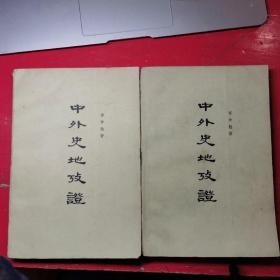 中外史地攷證
岑仲勉著
中外史地攷證
岑仲勉著